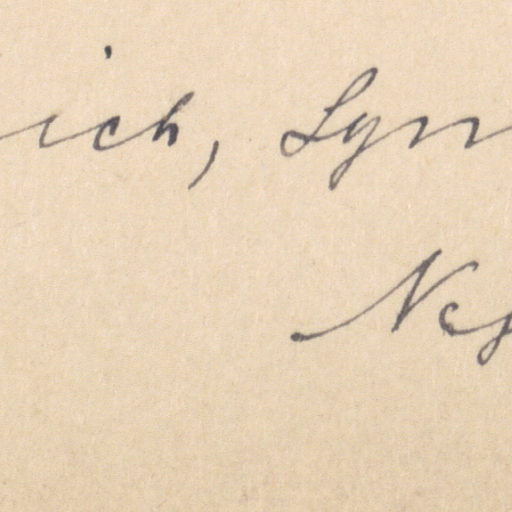 ich, Lyn
Nes